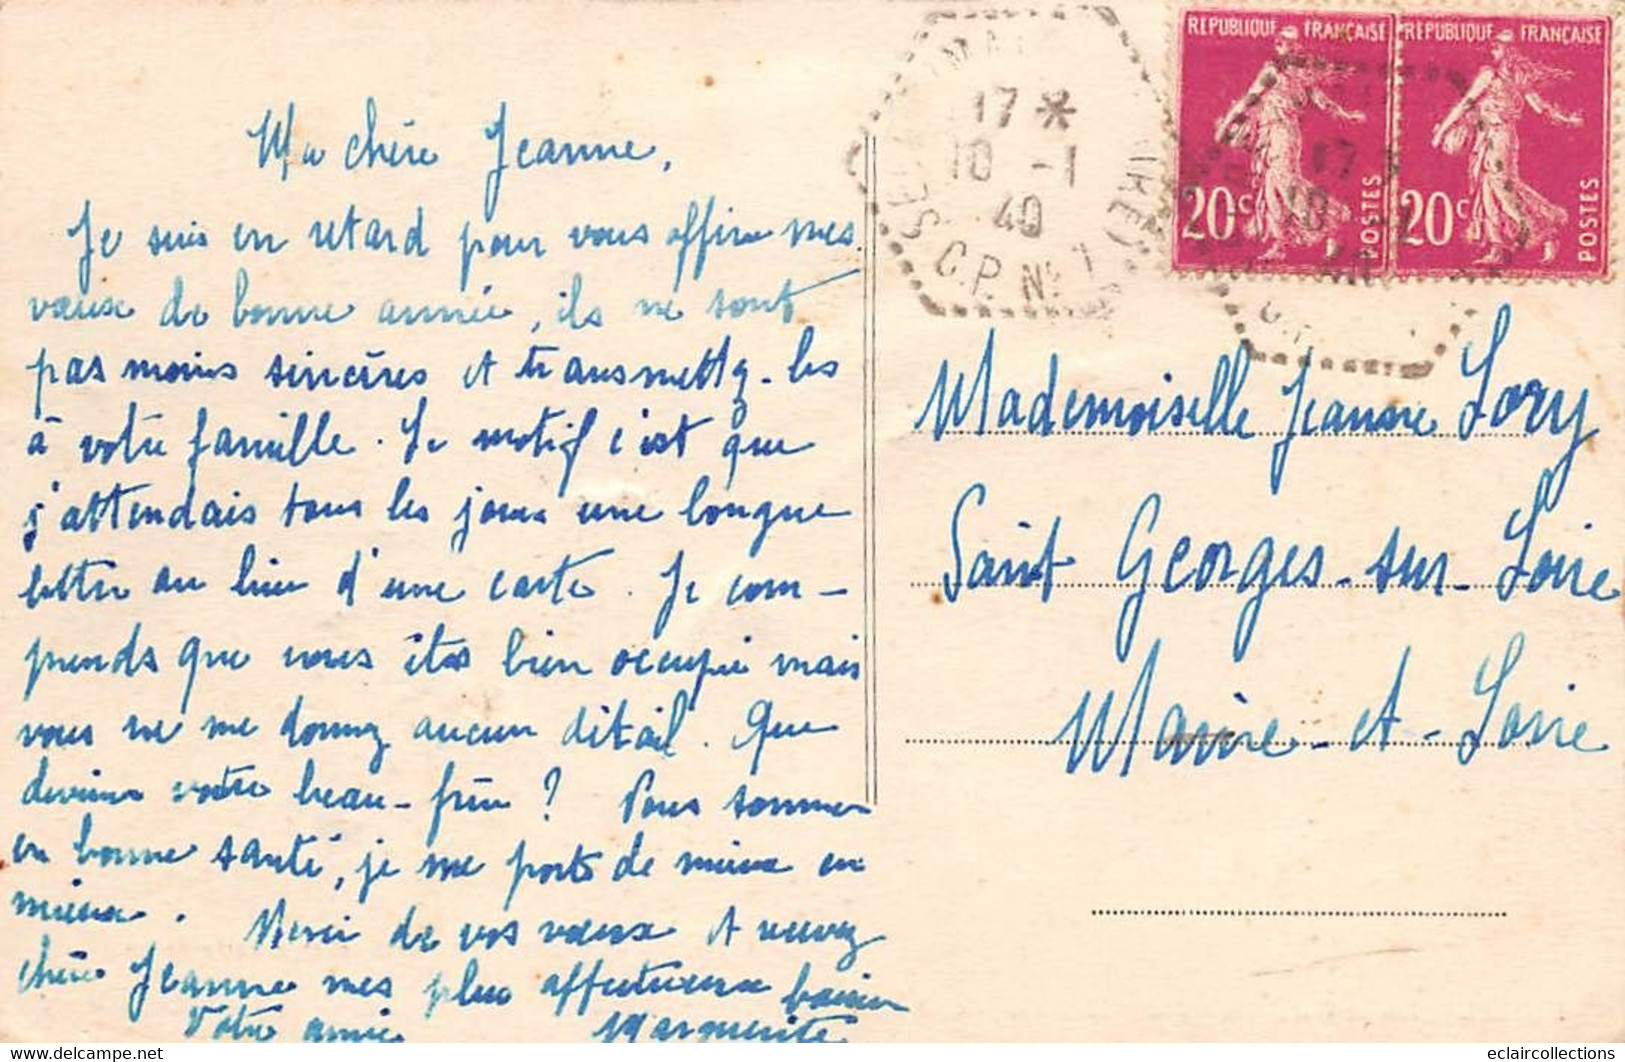 Ma chère Jeanne,
Je suis en retard pour vous offrir mes
vœux de bonne année, ils ne sont
pas moins sincères et transmettez-les
à votre famille. Le motif c'est que
j'attendais tous les jours une longue
lettre au lieu d'une carte. Je com-
prends que vous êtes bien occupée mais
vous ne me donnez aucun détail. Que
devient votre beau-frère ? Nous sommes
en bonne santé, je me porte de mieux en
mieux. Merci de vos vœux et recevez
chère Jeanne mes plus affectueux baisers
Votre amie Marguerite
17 *
10 -1
40
C.P. No 1
REPUBLIQUE FRANÇAISE
20c POSTES
REPUBLIQUE FRANÇAISE
20c POSTES
17
10
40
Mademoiselle Jeanne Lory
Saint Georges-sur-Loire
Maine-et-Loire
eclaircollections